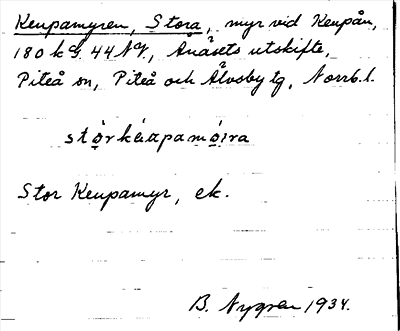 Keupamyren, Stora, myr vid Keupån,
180 kg 44 Ng, Ånäsets utskifte,
Piteå sn, Piteå och Älvsby tg, Norrb. l.
stọ́rkä́apamọ́ıra
Stor Keupamyr, ek.
B. Nygren 1934.